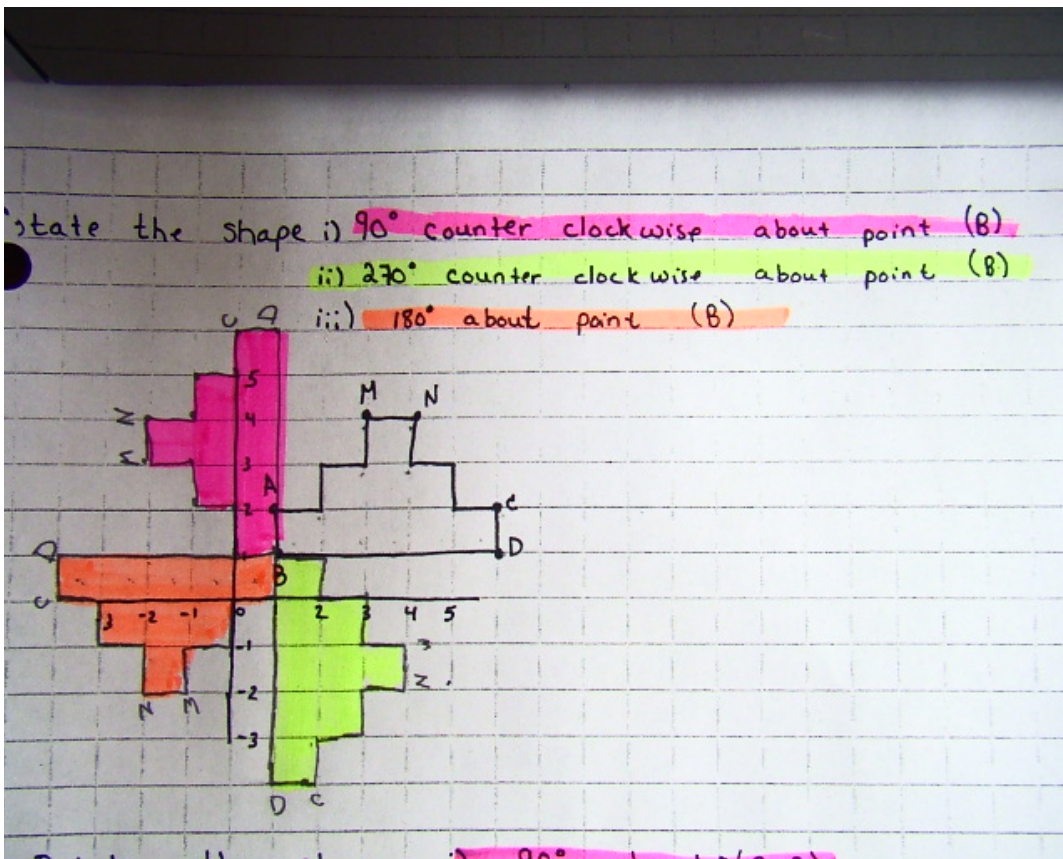 tate the shape i) 90° counter clockwise about point (B)
ii) 270° counter clockwise about point (B)
iii) 180° about point (B)
C D
5
M N
N 4
M 3
A 2 C
1 D
D B
C -3 -2 -1 0 2 3 4 5
-1 M
-2 N
N M
-3
D C
i) 90°